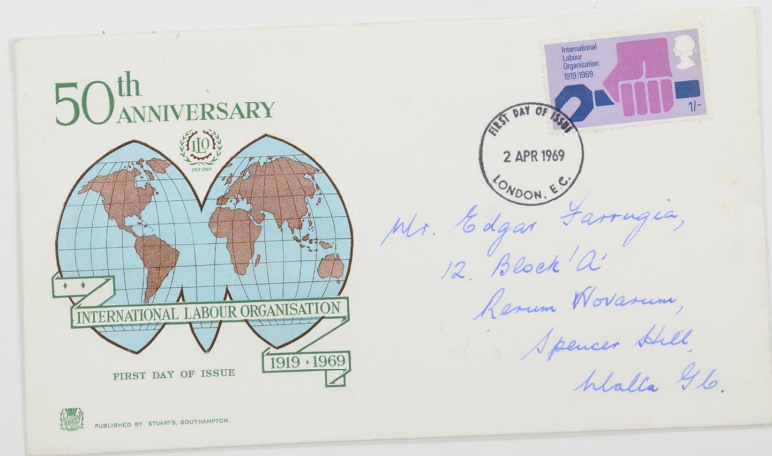 50th
ANNIVERSARY
ILO
1919-1969
INTERNATIONAL LABOUR ORGANISATION
1919 · 1969
FIRST DAY OF ISSUE
PUBLISHED BY STUART'S, SOUTHAMPTON
International
Labour
Organisation
1919/1969
1/-
FIRST DAY OF ISSUE
2 APR 1969
LONDON. E.C.
Mr. Edgar Farrugia,
12. Block 'A'
Rerum Novarum,
Spencer Hill,